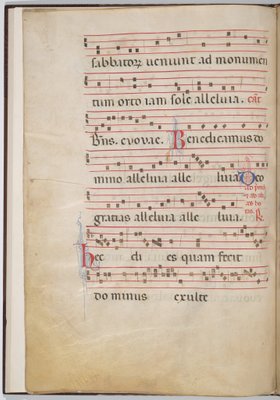 sabbatoꝝ veniunt ad monumen
tum orto iam sole alleluia.
Bñs. evovae. Benedicamus do
mino alleluia alle luia. Deo
gratias alleluia alle luia.
Hec di es quam fecit
do minus exulte